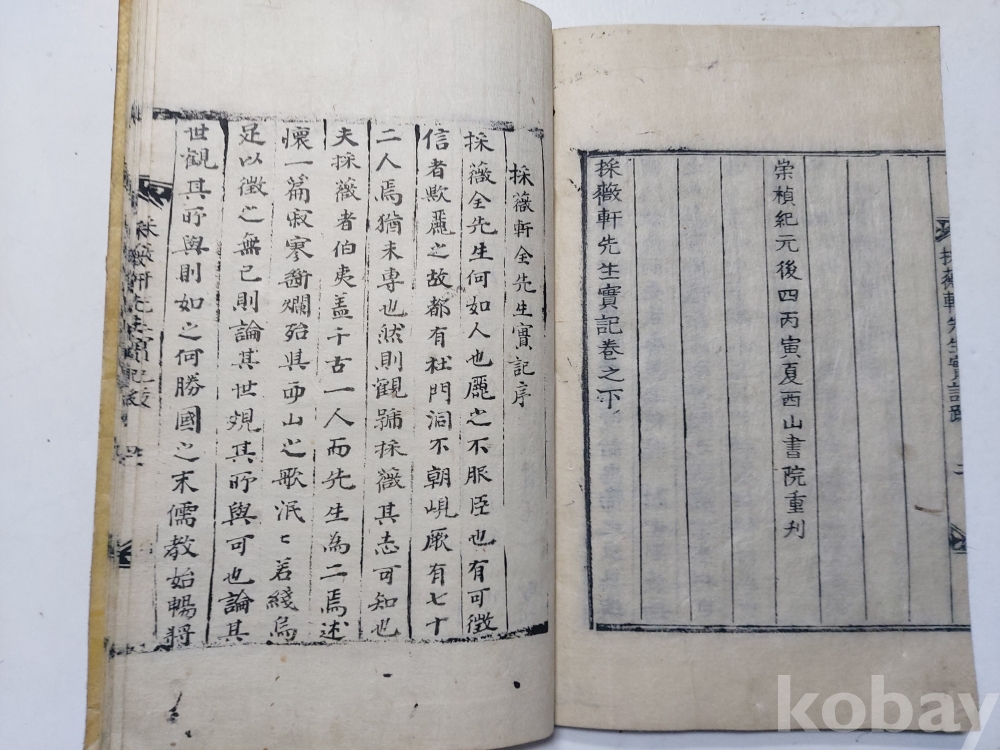 採薇軒先生實記跋
崇禎紀元後四丙寅夏西山書院重刋
採薇軒先生實記卷之下
採薇軒全先生實記序
採薇全先生何如人也麗之不服臣也有可徵
信者歟麗之故都有杜門洞不朝峴厥有七十
二人焉猶未専也然則觀號採薇其志可知也
夫採薇者伯夷盖千古一人而先生為二焉述
懷一篇寂寥斷爛殆與西山之歌泯〻若綫烏
足以徵之無已則論其世覌其所與可也論其
世觀其所與則如之何勝國之末儒教始暢將
kobay